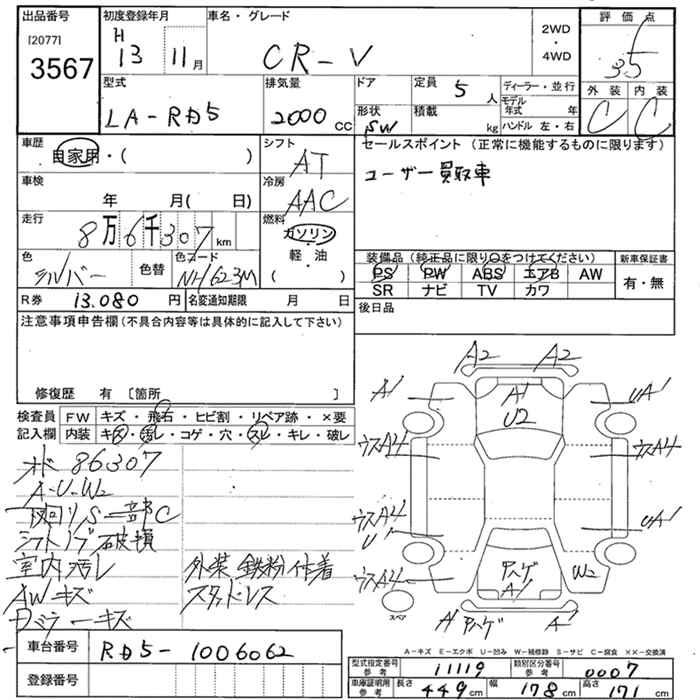 出品番号
[2077]
3567
初度登録年月
H 13 11月
車名・グレード
CR-V
2WD
・
4WD
評価点
3.5
外装 内装
C C
型式
LA-RD5
排気量
2000 cc
ドア
形状
SW
定員 5 人
積載 kg
ディーラー・並行
モデル年式 年
ハンドル 左・右
車歴
自家用・( )
シフト
AT
セールスポイント (正常に機能するものに限ります)
ユーザー買取車
車検
年 月( 日)
冷房
AAC
走行
8万6千307km
燃料
ガソリン
・
軽・油
( )
色
シルバー
色替
色コード
NH623M
装備品 (純正品に限り○をつけてください)
PS PW ABS エアB AW
SR ナビ TV カワ
新車保証書
有・無
R券 13.080 円 名変通知期限 月 日
後日品
注意事項申告欄 (不具合内容等は具体的に記入して下さい)
修復歴 有 [箇所 ]
検査員 FW キズ・飛石・ヒビ割・リペア跡・×要
記入欄 内装 キズ・汚レ・コゲ・穴・スレ・キレ・破レ
メド 86307
A・U・W2
下回りS 一部C
シフトノブ破損
室内汚レ
AWキズ
外装 鉄粉付着
スタッドレス
A2 A2
A1 A1 UA1
U2
ウスA4 ウスA4
ウスA4 UA1
U1
ウスA4 ハゲ W2
A1
スペア
A1 ハゲ A2
A-キズ E-エクボ U-凹み W-補修跡 S-サビ C-腐食 XX-交換済
車台番号 RD5-1006062
登録番号
型式指定番号 参考 11119
類別区分番号 参考 0007
車庫証明用 参考 長さ 449cm 幅 178cm 高さ 171cm